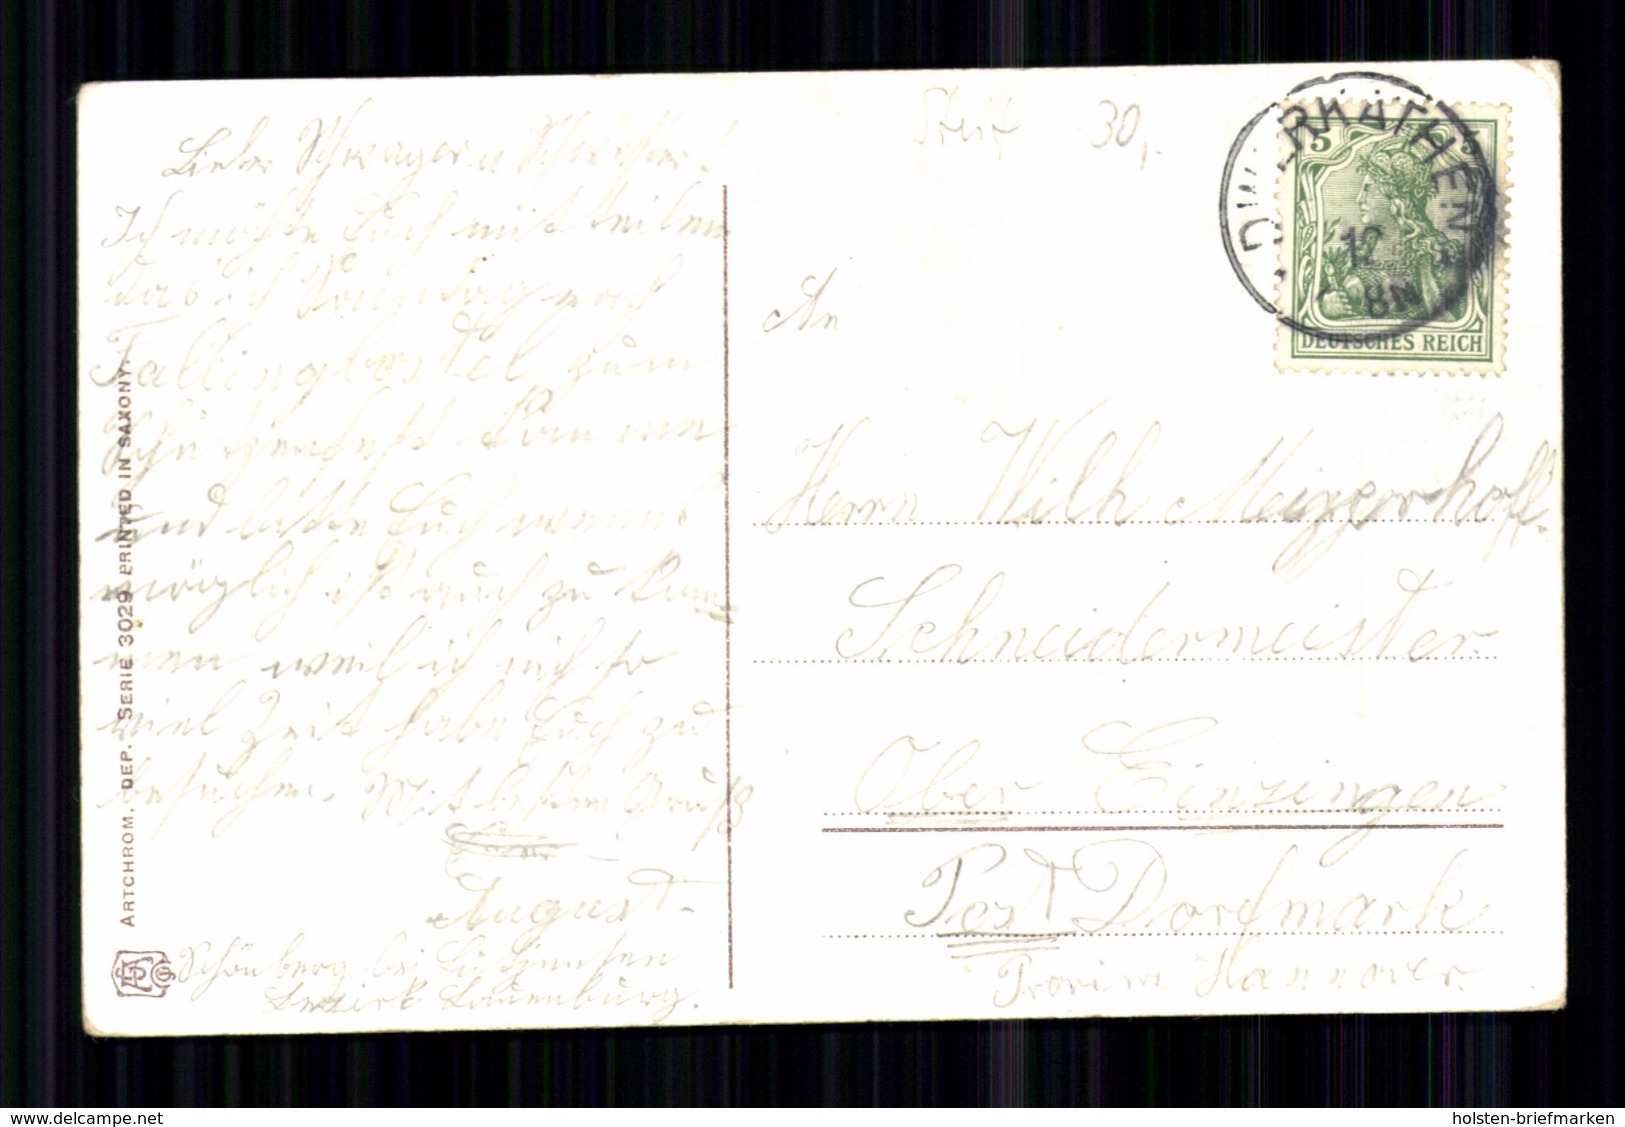 Lieber Schwager u Schwester!
Ich möchte Euch mitteilen
das ich Sonntag nach
Fallingbostel zum
Schützenfest komme
und bitte Euch wenns
möglich ist auch zu kom-
men weil ich nich so
viel Zeit habe Euch zu
besuchen. Mit besten Gruß
August.
Schönberg bei
Bezirk Lauenburg.
ARTCHROM. DEP. SERIE 3029 PRINTED IN SAXONY.
30,-
RKATHEN
5 5
12
8N
DEUTSCHES REICH
An
Herrn Wilh Meyerhoff.
Schneidermeister.
Ober Einzingen
Post Dorfmark
Provinz Hannover.
www.delcampe.net
holsten-briefmarken